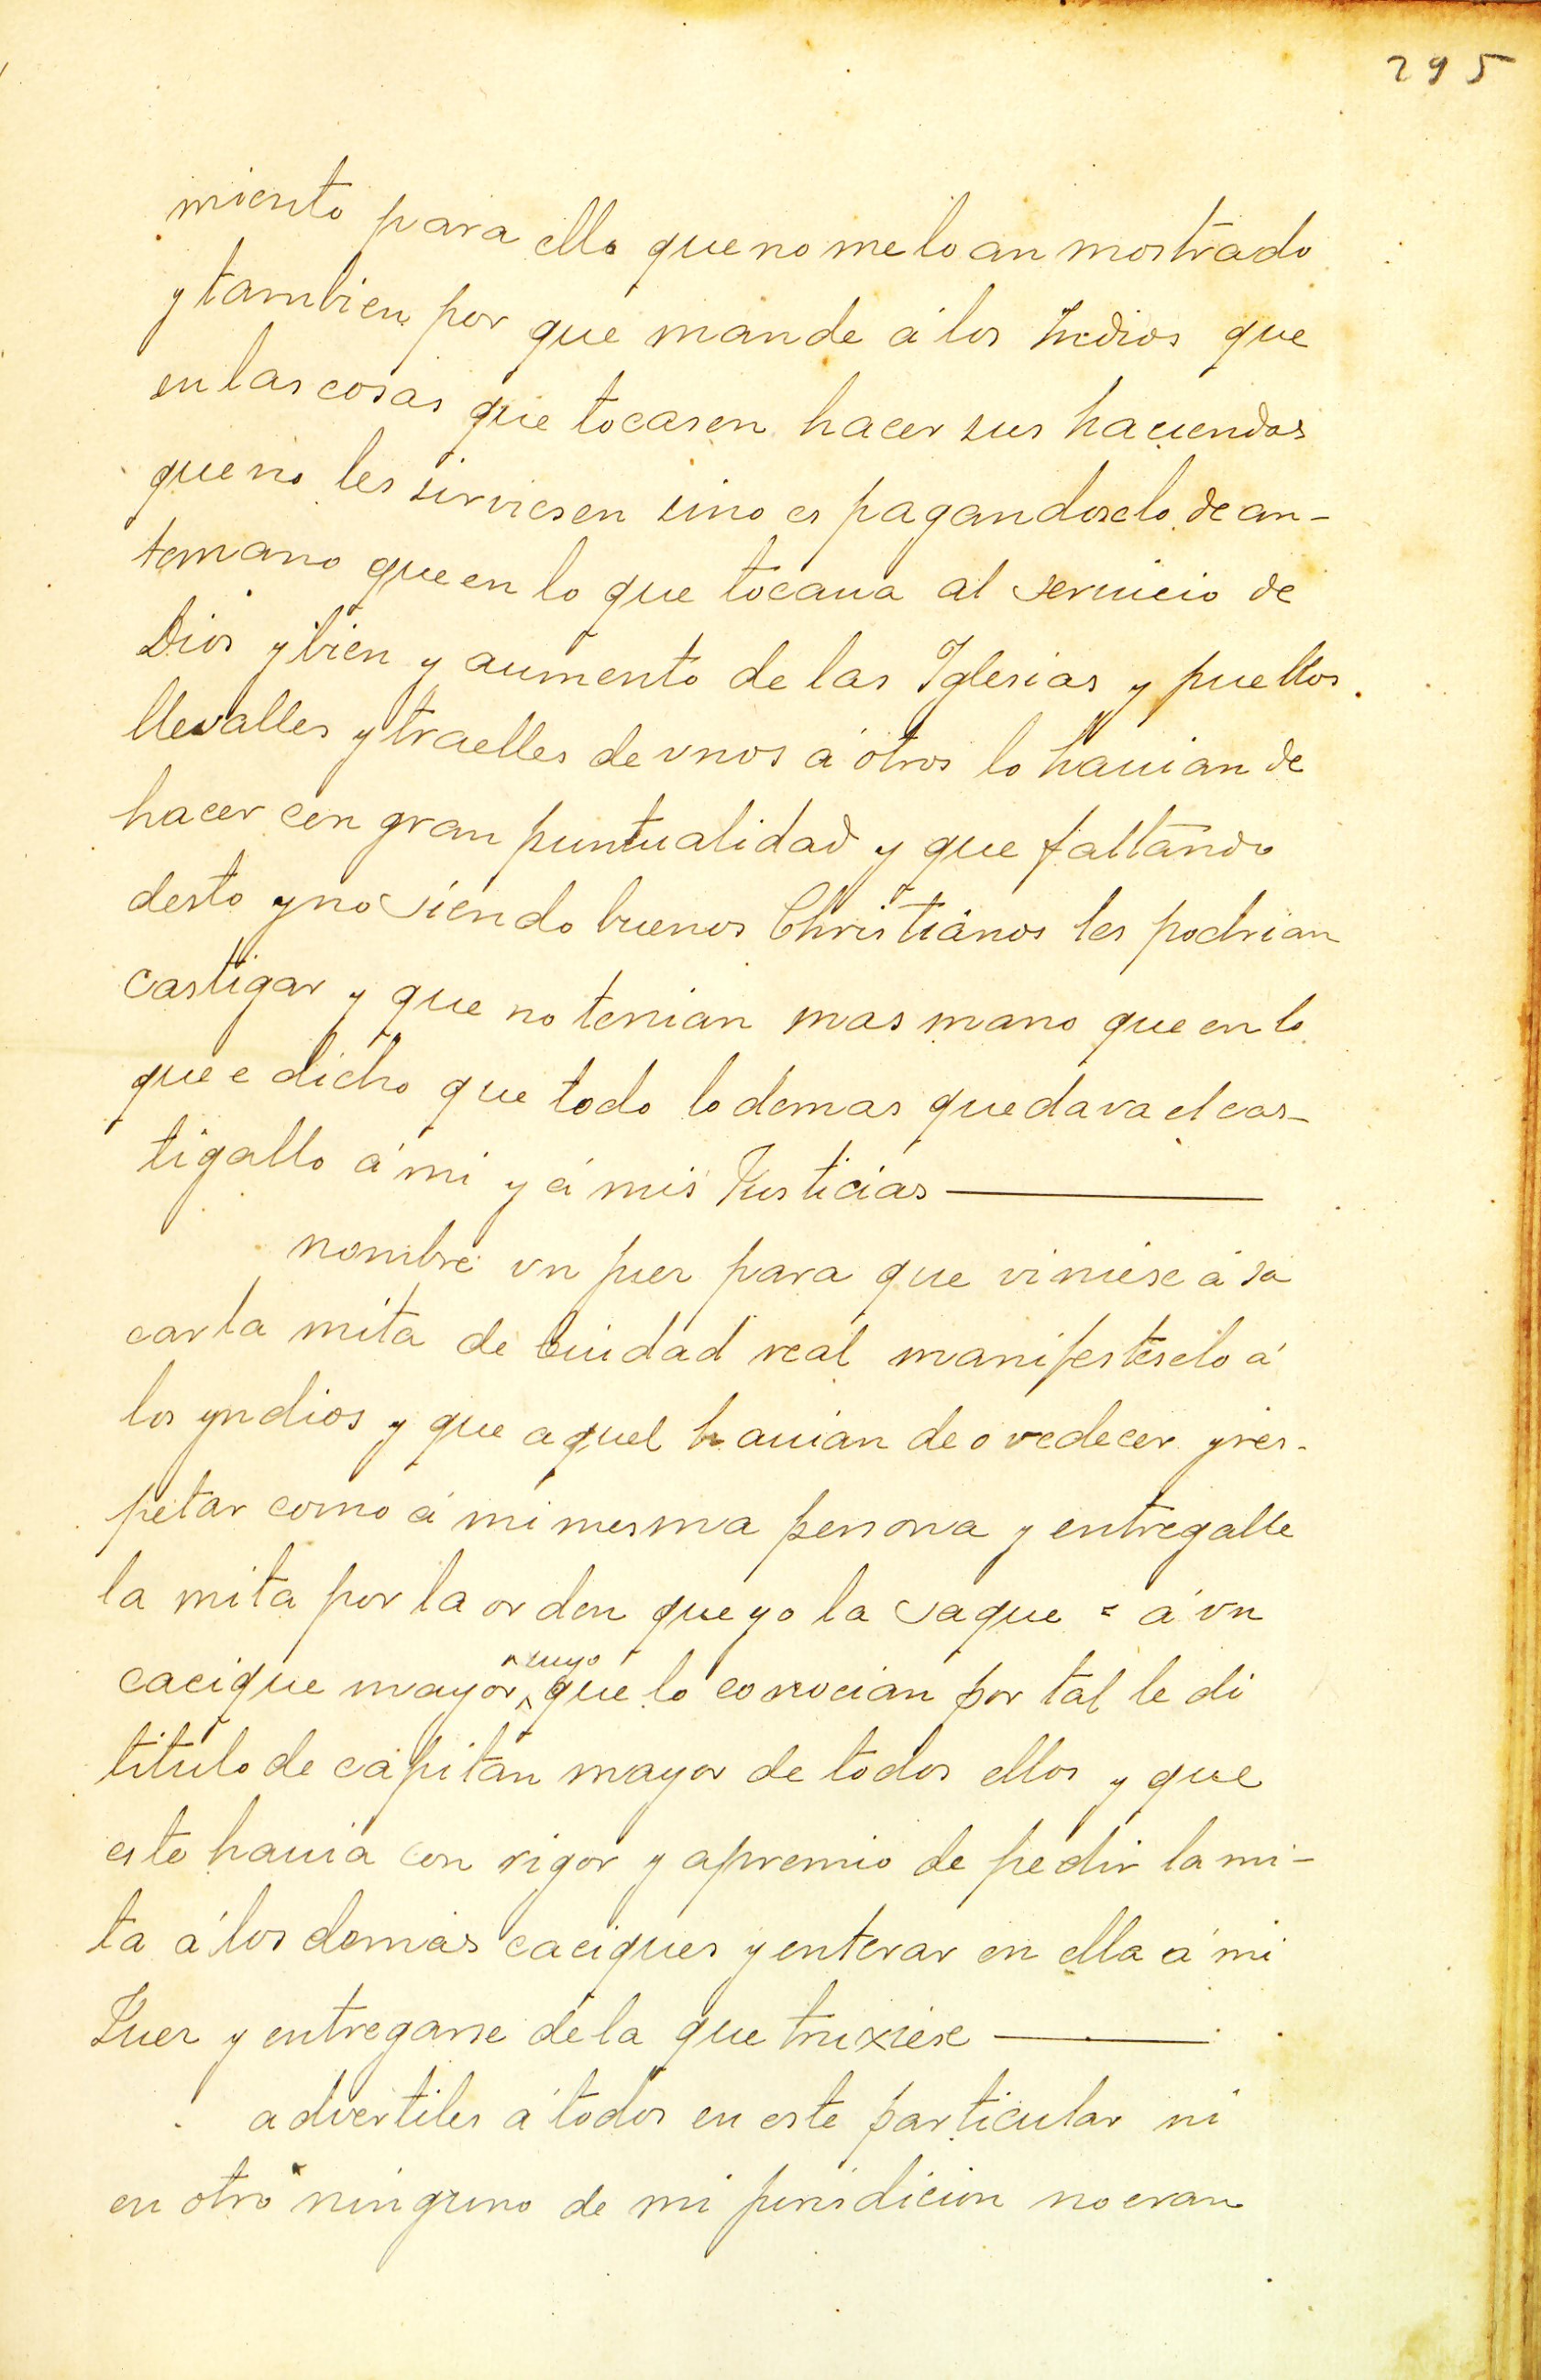 295
miento para ello que no me lo an mostrado
y tambien por que mande á los Indios que
en las cosas que tocasen hacer sus haciendas
que no les sirviesen sino es pagandoselo de an-
temano que en lo que tocaua al seruicio de
Dios y bien y aumento de las Iglesias y puellos
llevalles y traelles de vnos á otros lo hauian de
hacer con gran puntualidad y que faltando
desto y no siendo buenos Christianos les podrian
castigar y que no tenian mas mano que en lo
que e dicho que todo lo demas quedava el cas-
tigallo á mi y á mis Justicias
nombre vn juez para que viniese á sa
car la mita de Ciudad real manifesteselo á
los yndios y que aquel hauian de ovedecer y res-
petar como á mi mesma persona y entregalle
la mita por la orden que yo la saque = á vn
cacique mayor suyo que lo conocian por tal le di
titulo de capitan mayor de todos ellos y que
este hauia con rigor y apremio de pedir la mi-
ta á los demas caciques y enterar en ella á mi
Juez y entregarse de la que truxiese
advertiles á todos en este particular ni
en otro ninguno de mi juridicion no eran